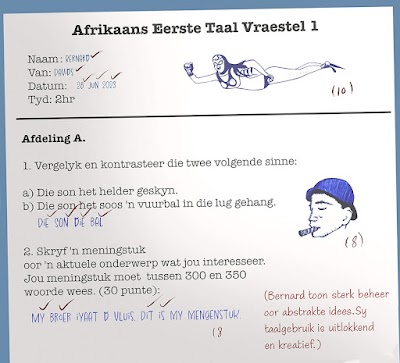 Afrikaans Eerste Taal Vraestel 1
Naam: BERNARD
Van: DAVIDS
Datum: 26 JUN 2023
Tyd: 2hr
(10)
Afdeling A.
1. Vergelyk en kontrasteer die twee volgende sinne:
a) Die son het helder geskyn.
b) Die son het soos 'n vuurbal in die lug gehang.
DIE SON DIE BAL
(8)
2. Skryf 'n meningstuk
oor 'n aktuele onderwerp wat jou interesseer.
Jou meningstuk moet tussen 300 en 350
woorde wees. (30 punte):
MY BROER D VLUIS. DIT IS MY MENGENSTUK.
(8
(Bernard toon sterk beheer
oor abstrakte idees.Sy
taalgebruik is uitlokkend
en kreatief.)